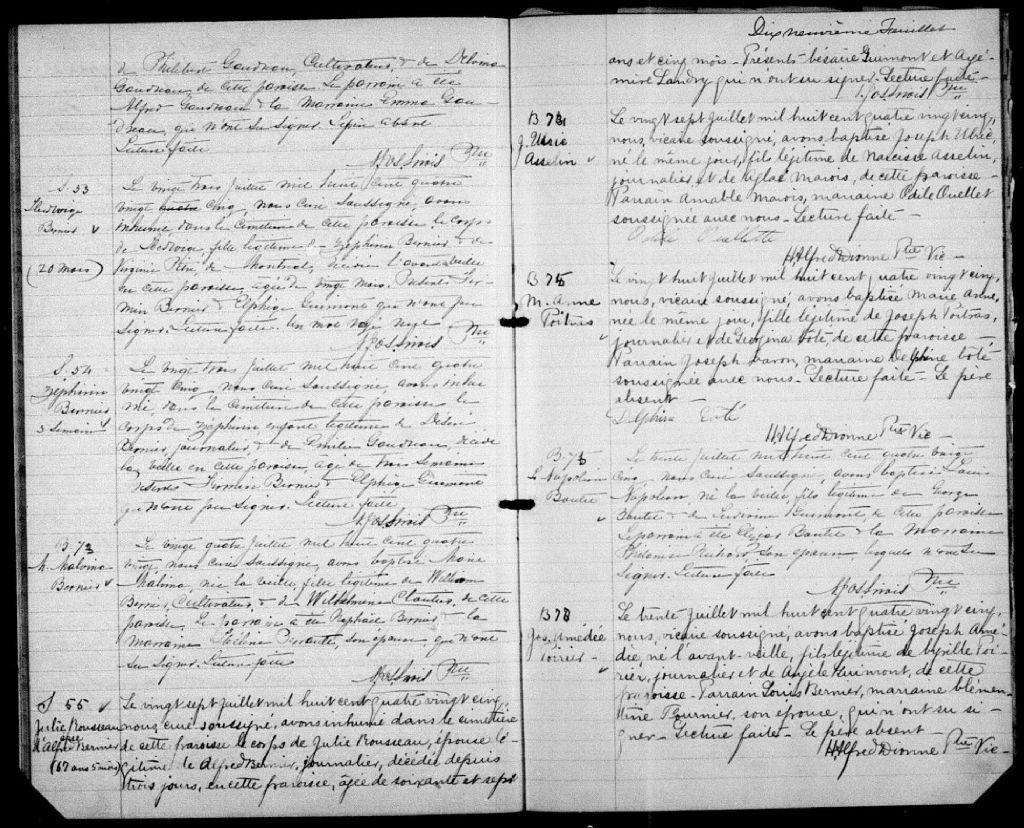 de Philibert Gaudreau, Cultivateur, & de Delvina
Gaudreau, de cette paroisse. Le parrain a été
Alfred Gaudreau & la Marraine Emma Gau-
dreau, qui n'ont su signer. Le père absent
Lecture faite
Ptre
S. 53
Hedwige
Bernier
(20 mois)
Le vingt trois Juillet mil huit cent quatre
vingt quatre cinq, nous Curé soussigné, avons
inhumé dans le Cimetière de cette paroisse le corps
de Hedwige, fille légitime de Zéphirin Bernier & de
Virginie de Montréal, décédée l'avant veille
en cette paroisse, âgée de vingt mois. Présents Fir-
min Bernier & Elphége Guimont qui n'ont pu
signer. Lecture faite. Un mot rayé nul
Ptre
S. 54
Zéphirin
Bernier
3 Semaines
Le vingt trois Juillet mil huit cent quatre
vingt cinq, nous Curé soussigné, avons inhu-
mé, dans le Cimetière de cette paroisse le
corps de Zéphirin enfant légitime de Désiré
Bernier, journalier, & de Emilie Gaudreau, décédé
la veille en cette paroisse, âgé de trois semaines
Présents Bernier & Elphége Guimont
qui n'ont pu signer. Lecture faite
Ptre
B 73
M. Malvina
Bernier
Le vingt quatre Juillet mil huit cent quatre
vingt, nous Curé soussigné, avons baptisé Marie
Malvina, née la veille, fille légitime de William
Bernier, Cultivateur, & de Wilhelmine Cloutier, de cette
paroisse. Le parrain a été Raphaël Bernier & la
Marraine son épouse qui n'ont
su signer. Lecture faite
Ptre
S 55
Julie Rousseau
épse d'Alfr. Bernier
(67 ans 5 mois)
Le vingt sept Juillet mil huit cent quatre vingt cinq,
nous, curé soussigné, avons inhumé dans le cimetière
de cette paroisse le corps de Julie Rousseau, épouse lé-
gitime de Alfred Bernier, journalier, décédée depuis
trois jours, en cette paroisse, âgée de soixante et sept
Dix neuvième Feuillet
ans et cinq mois. Présents Césaire Guimont et
Landry qui n'ont su signer. Lecture faite
Ptre
B 74
J. Ulric
Asselin
Le vingt sept Juillet mil huit cent quatre vingt cinq,
nous, vicaire soussigné, avons baptisé Joseph Ulric,
né le même jour, fils légitime de Narcisse Asselin,
journalier, et de Aglaé Marois, de cette paroisse
Parrain Amable Marois, marraine Odile Ouellet
soussignée avec nous. Lecture faite
Odile Ouellette
H. Alfred Dionne Ptre Vic
B 75
M. Anne
Poitras
Le vingt huit Juillet mil huit cent quatre vingt cinq,
nous, vicaire soussigné, avons baptisé Marie Anne,
née le même jour, fille légitime de Joseph Poitras,
journalier et de Georgina Côté, de cette paroisse
Parrain Joseph Caron, marraine Delphine Côté
soussignée avec nous. Lecture faite. Le père
absent
Delphine Coté
H. Alfred Dionne Ptre Vic
Ls Napoléon
Le trente Juillet mil huit cent quatre vingt
cinq, nous Curé soussigné, avons baptisé Louis
Napoléon né la veille, fils légitime de George
& de Guimont, de cette paroisse
Le parrain a été & la Marraine
Philomène son épouse lesquels n'ont su
signer. Lecture faite
Ptre
B 78
Jos. Amédée
Poirier
Le trente Juillet mil huit cent quatre vingt cinq,
nous, vicaire soussigné, avons baptisé Joseph Amé-
dée, né l'avant-veille, fils légitime de Cyrille Poi-
rier, journalier et de Angèle Guimont, de cette
paroisse. Parrain Louis Bernier, marraine Clémen-
tine Fournier, son épouse, qui n'ont su si-
gner. Lecture faite. Le père absent
H. Alfred Dionne Ptre Vic